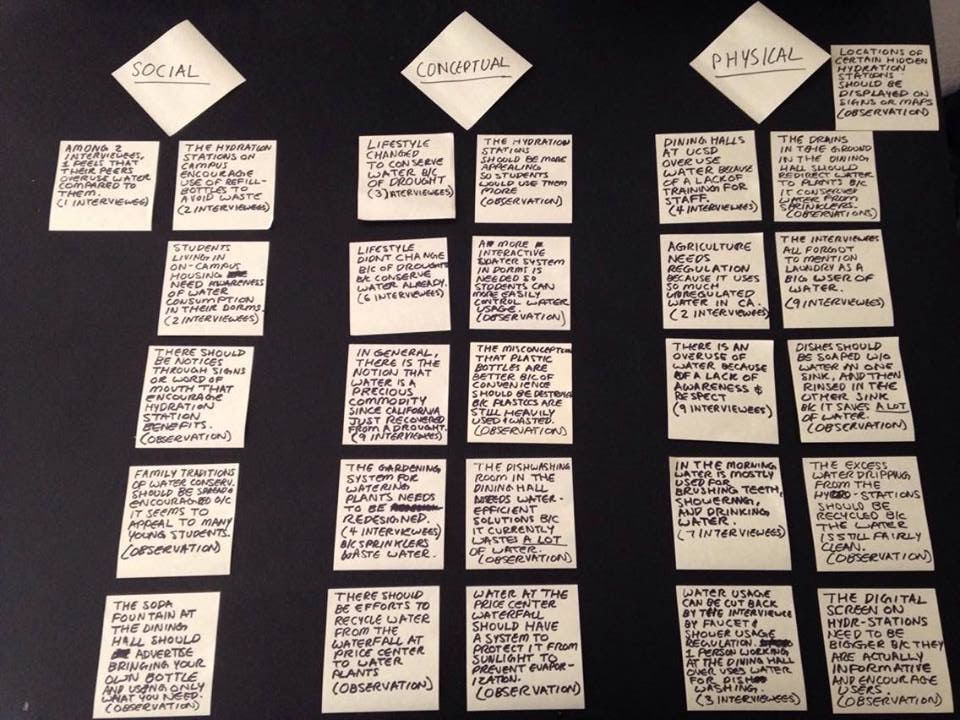 SOCIAL
AMONG 2
INTERVIEWEES,
1 FEELS THAT
THEIR PEERS
OVERUSE WATER
COMPARED TO
THEM.
(1 INTERVIEWEE)
THE HYDRATION
STATIONS ON
CAMPUS
ENCOURAGE
USE OF REFILL-
BOTTLES TO
AVOID WASTE
(2 INTERVIEWEES)
STUDENTS
LIVING IN
ON-CAMPUS
HOUSING
NEED AWARENESS
OF WATER
CONSUMPTION
IN THEIR DORMS.
(2 INTERVIEWEES)
THERE SHOULD
BE NOTICES
THROUGH SIGNS
OR WORD OF
MOUTH THAT
ENCOURAGE
HYDRATION
STATION
BENEFITS.
(OBSERVATION)
FAMILY TRADITIONS
OF WATER CONSERV.
SHOULD BE SPREAD &
ENCOURAGED B/C
IT SEEMS TO
APPEAL TO MANY
YOUNG STUDENTS.
(OBSERVATION)
THE SODA
FOUNTAIN AT
THE DINING
HALL SHOULD
ADVERTISE
BRINGING YOUR
OWN BOTTLE
AND USING ONLY
WHAT YOU NEED.
(OBSERVATION)
CONCEPTUAL
LIFESTYLE
CHANGED
TO CONSERVE
WATER B/C
OF DROUGHT
(3 INTERVIEWEES)
THE HYDRATION
STATIONS
SHOULD BE MORE
APPEALING
SO STUDENTS
WOULD USE THEM
MORE
(OBSERVATION)
LIFESTYLE
DIDNT CHANGE
B/C OF DROUGHT
B/C CONSERVE
WATER ALREADY.
(6 INTERVIEWEES)
A MORE
INTERACTIVE
WATER SYSTEM
IN DORMS IS
NEEDED SO
STUDENTS CAN
MORE EASILY
CONTROL WATER
USAGE.
(OBSERVATION)
IN GENERAL,
THERE IS THE
NOTION THAT
WATER IS A
PRECIOUS
COMMODITY
SINCE CALIFORNIA
JUST RECOVERED
FROM A DROUGHT.
(9 INTERVIEWEES)
THE MISCONCEPTION
THAT PLASTIC
BOTTLES ARE
BETTER B/C OF
CONVENIENCE
SHOULD BE DESTROYED
B/C PLASTICS ARE
STILL HEAVILY
USED & WASTED.
(OBSERVATION)
THE GARDENING
SYSTEM FOR
WATERING
PLANTS NEEDS
TO BE
REDESIGNED.
(4 INTERVIEWEES)
B/C SPRINKLERS
WASTE WATER.
THE DISHWASHING
ROOM IN THE
DINING HALL
NEEDS WATER-
EFFICIENT
SOLUTIONS B/C
IT CURRENTLY
WASTES A LOT
OF WATER.
(OBSERVATION)
THERE SHOULD
BE EFFORTS TO
RECYCLE WATER
FROM THE
WATERFALL AT
PRICE CENTER
TO WATER
PLANTS
(OBSERVATION)
WATER AT THE
PRICE CENTER
WATERFALL
SHOULD HAVE
A SYSTEM TO
PROTECT IT FROM
SUNLIGHT TO
PREVENT EVAPOR-
IZATON.
(OBSERVATION)
PHYSICAL
LOCATIONS OF
CERTAIN HIDDEN
HYDRATION
STATIONS
SHOULD BE
DISPLAYED ON
SIGNS OR MAPS
(OBSERVATION)
DINING HALLS
AT UCSD
OVER USE
WATER BECAUSE
OF A LACK OF
TRAINING FOR
STAFF.
(4 INTERVIEWEES)
THE DRAINS
IN THE GROUND
IN THE DINING
HALL SHOULD
REDIRECT WATER
TO PLANTS B/C
IT CONSERVES
WATER FROM
SPRINKLERS.
(OBSERVATIONS)
AGRICULTURE
NEEDS
REGULATION
BECAUSE IT USES
SO MUCH
UNREGULATED
WATER IN CA.
(2 INTERVIEWEES)
THE INTERVIEWEES
ALL FORGOT
TO MENTION
LAUNDRY AS A
BIG USER OF
WATER.
(9 INTERVIEWEES)
THERE IS AN
OVERUSE OF
WATER BECAUSE
OF A LACK OF
AWARENESS &
RESPECT
(9 INTERVIEWEES)
DISHES SHOULD
BE SOAPED W/O
WATER IN ONE
SINK, AND THEN
RINSED IN THE
OTHER SINK
B/C IT SAVES A LOT
OF WATER.
(OBSERVATION)
IN THE MORNING
WATER IS MOSTLY
USED FOR
BRUSHING TEETH,
SHOWERING,
AND DRINKING
WATER.
(7 INTERVIEWEES)
THE EXCESS
WATER DRIPPING
FROM THE
HYDR-STATIONS
SHOULD BE
RECYCLED B/C
THE WATER
IS STILL FAIRLY
CLEAN.
(OBSERVATION)
WATER USAGE
CAN BE CUT BACK
BY THE INTERVIEWEE
BY FAUCET &
SHOWER USAGE
REGULATION.
1 PERSON WORKING
AT THE DINING HALL
OVER USES WATER
FOR DISH
WASHING.
(3 INTERVIEWEES)
THE DIGITAL
SCREEN ON
HYDR-STATIONS
NEED TO BE
BIGGER B/C THEY
ARE ACTUALLY
INFORMATIVE
AND ENCOURAGE
USERS.
(OBSERVATION)